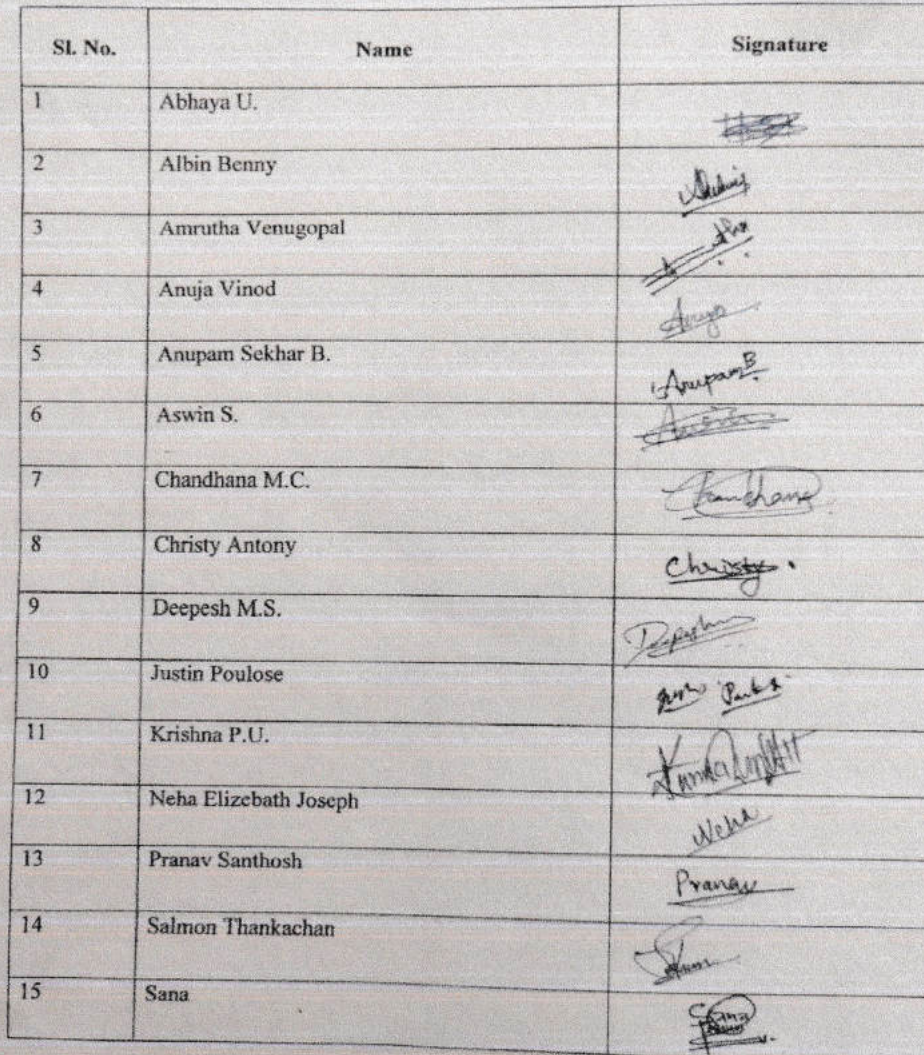 Sl. No. Name Signature
1 Abhaya U.
2 Albin Benny
3 Amrutha Venugopal
4 Anuja Vinod
5 Anupam Sekhar B. Anupam B
6 Aswin S.
7 Chandhana M.C. Chandhana
8 Christy Antony Christy
9 Deepesh M.S.
10 Justin Poulose
11 Krishna P.U.
12 Neha Elizebath Joseph Neha
13 Pranav Santhosh Pranav
14 Salmon Thankachan
15 Sana